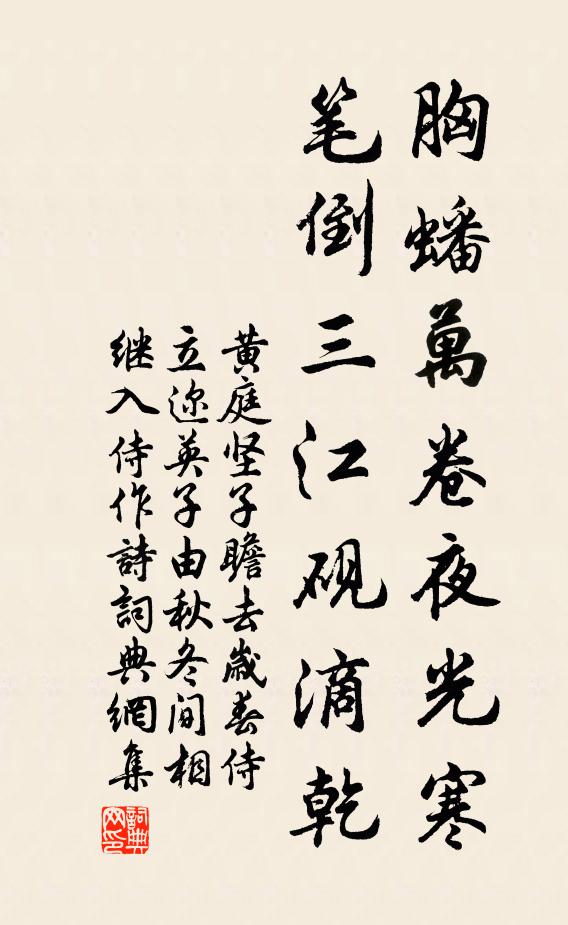 胸蟠萬卷夜光寒
笔倒三江砚滴乾
黄庭坚子瞻去歲春侍
立迩英子由秋冬间相
继入侍作詩詞典網集
詞典
网印